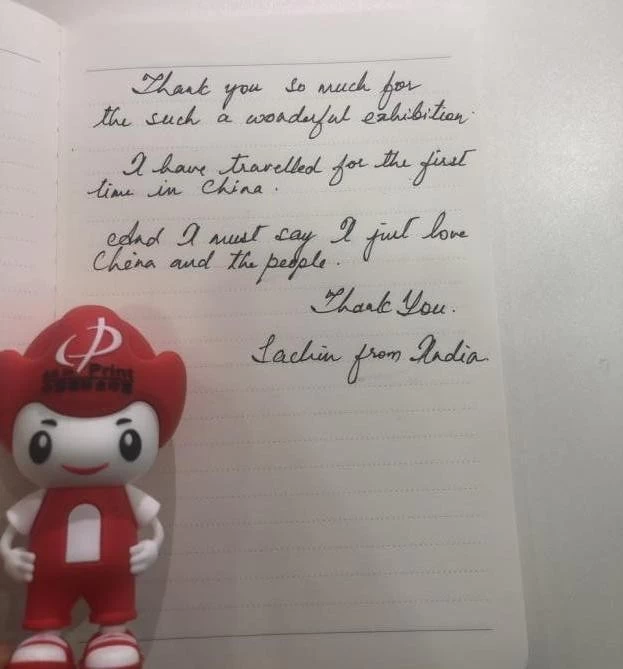 Thank you so much for
the such a wonderful exhibition.
I have travelled for the first
time in China.
And I must say I just love
China and the people.
Thank You.
Sachin from India.
Print